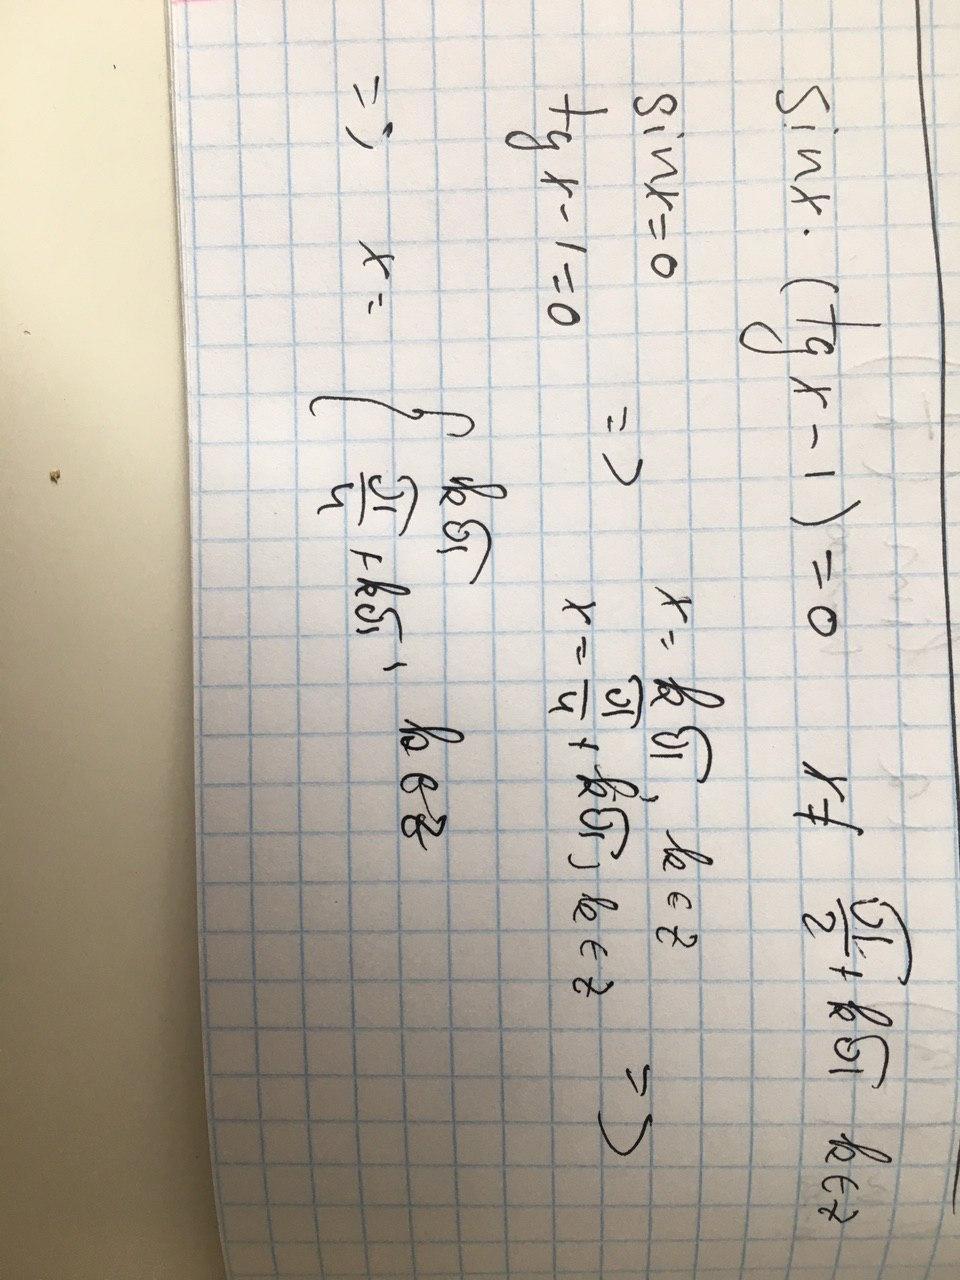 Sinx · (tg x - 1) = 0    x ≠ π/2 + kπ    k ∈ z
Sinx = 0 => x = kπ, k ∈ z =>
tg x - 1 = 0    x = π/4 + kπ, k ∈ z
=> x = { kπ
π/4 + kπ, k ∈ z